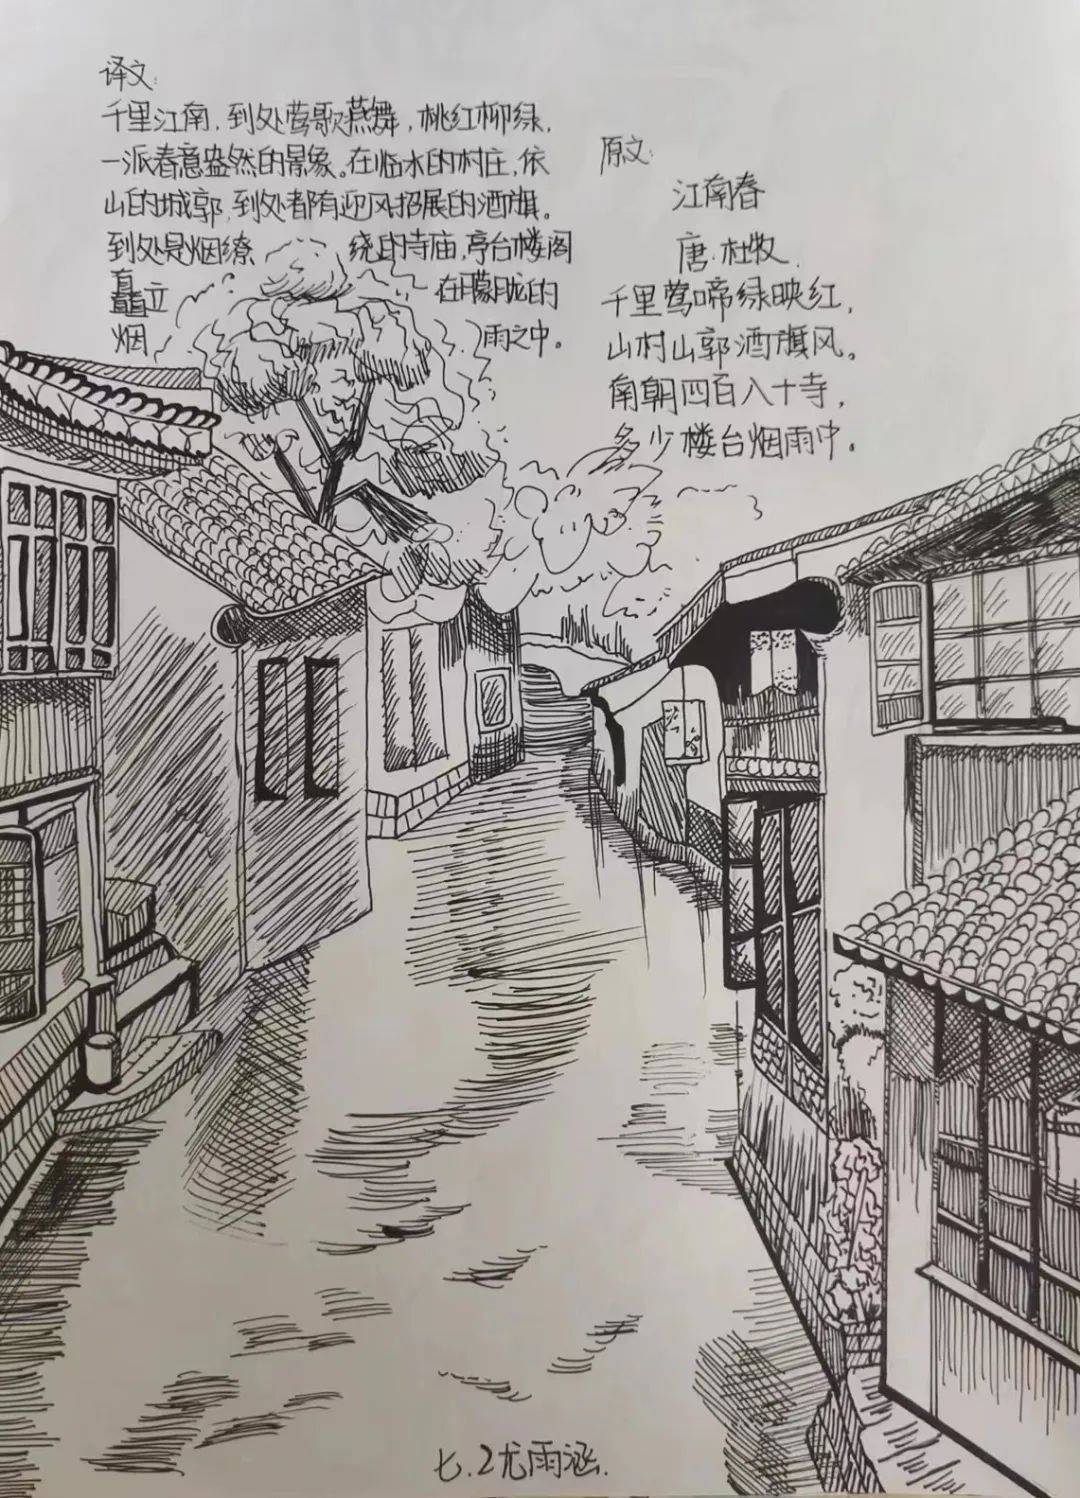 译文:
千里江南,到处莺歌燕舞,桃红柳绿,
一派春意盎然的景象。在临水的村庄,依
山的城郭,到处都有迎风招展的酒旗。
到处是烟缭 绕的寺庙,亭台楼阁
矗立 在朦胧的
烟 雨之中。
原文:
江南春
唐.杜牧
千里莺啼绿映红,
山村山郭酒旗风。
南朝四百八十寺,
多少楼台烟雨中。
七.2尤雨涵.